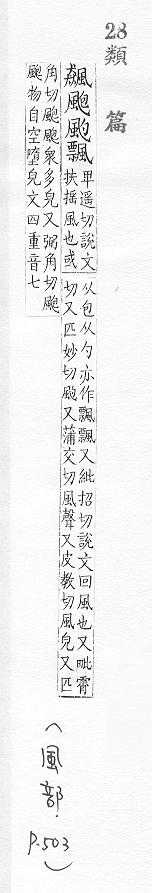 28 類篇
飆颮飄
卑遥切說文
扶揺風也或
从包从勺亦作飄飄又紕招切說文回風也又毗霄
切又匹妙切颮又蒲交切風聲又皮教切風皃又匹
角切颮颮衆多皃又弼角切颮
颮物自空墮皃文四重音七
(風部. P.503)